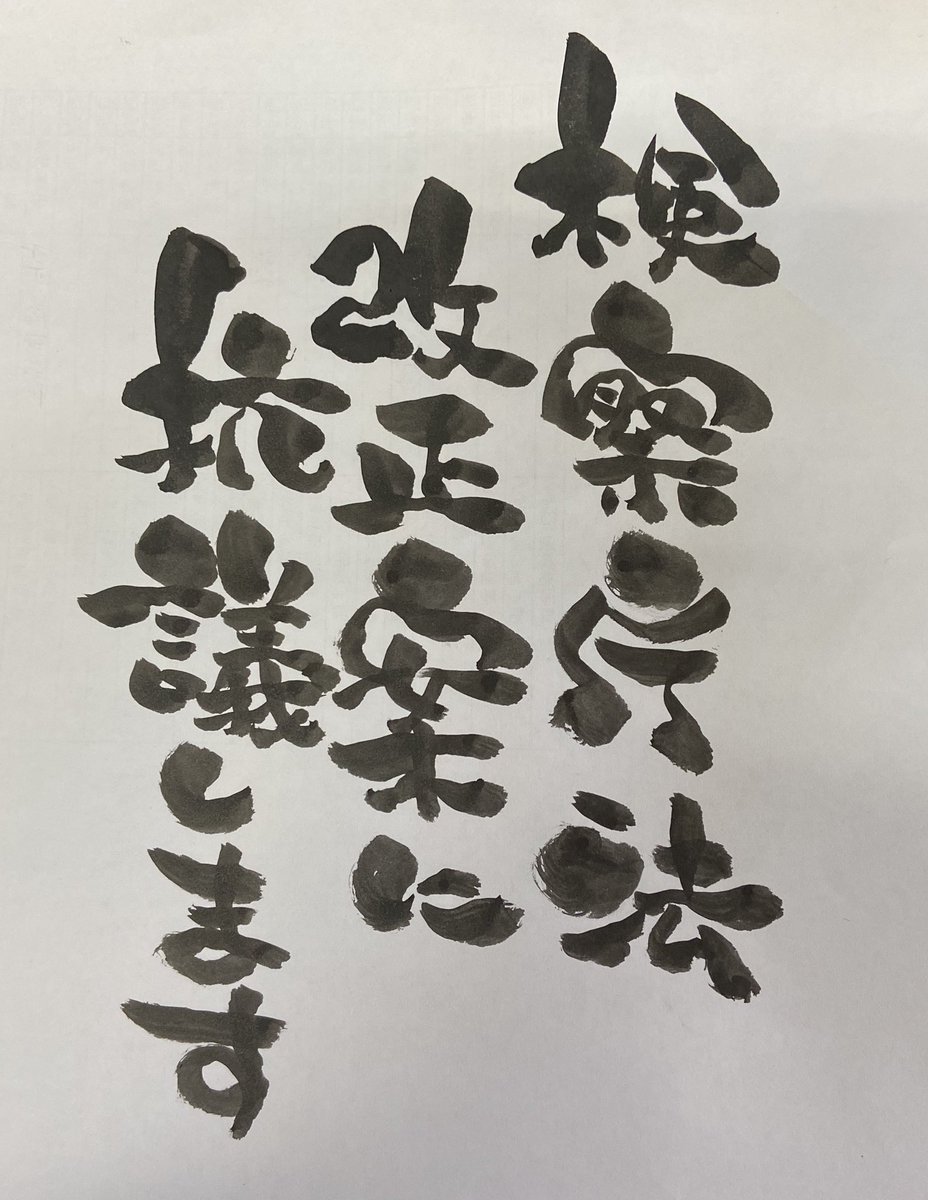 検察庁法
改正案に
抗議します